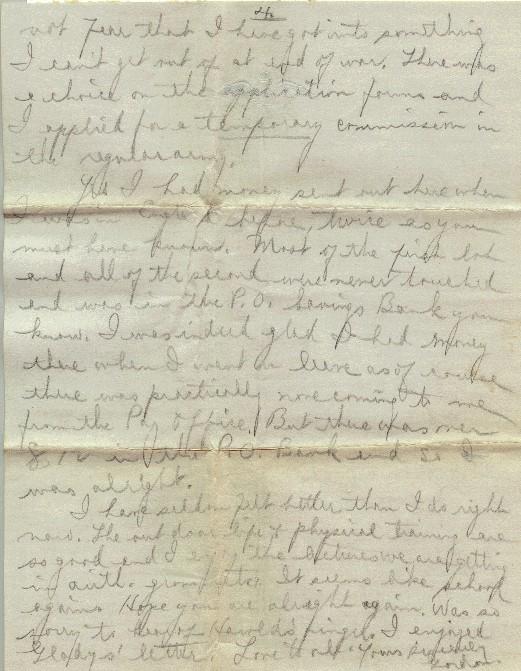 4.
not fear that I have got into something
I can't get out of at end of war. There was
a choice on the application forms and
I applied for a temporary commission in
the regular army.
Yes I had money sent out here when
I was in before, twice as you
must have known. Most of the first lot
and all of the second were never touched
and was in the P.O. Savings Bank you
know. I was indeed glad I had money
there when I went on leave as of course
there was practically none coming to me
from the Pay Office. But there was over
in the P.O. Bank and so I
was alright.
I have seldom felt better than I do right
now. The out door life & physical training are
so good and I enjoy the lectures we are getting
in It seems like school
again. Hope you are alright again. Was so
sorry to hear of Harold's finger. I enjoyed
Gladys' letter. Love to all. Yours